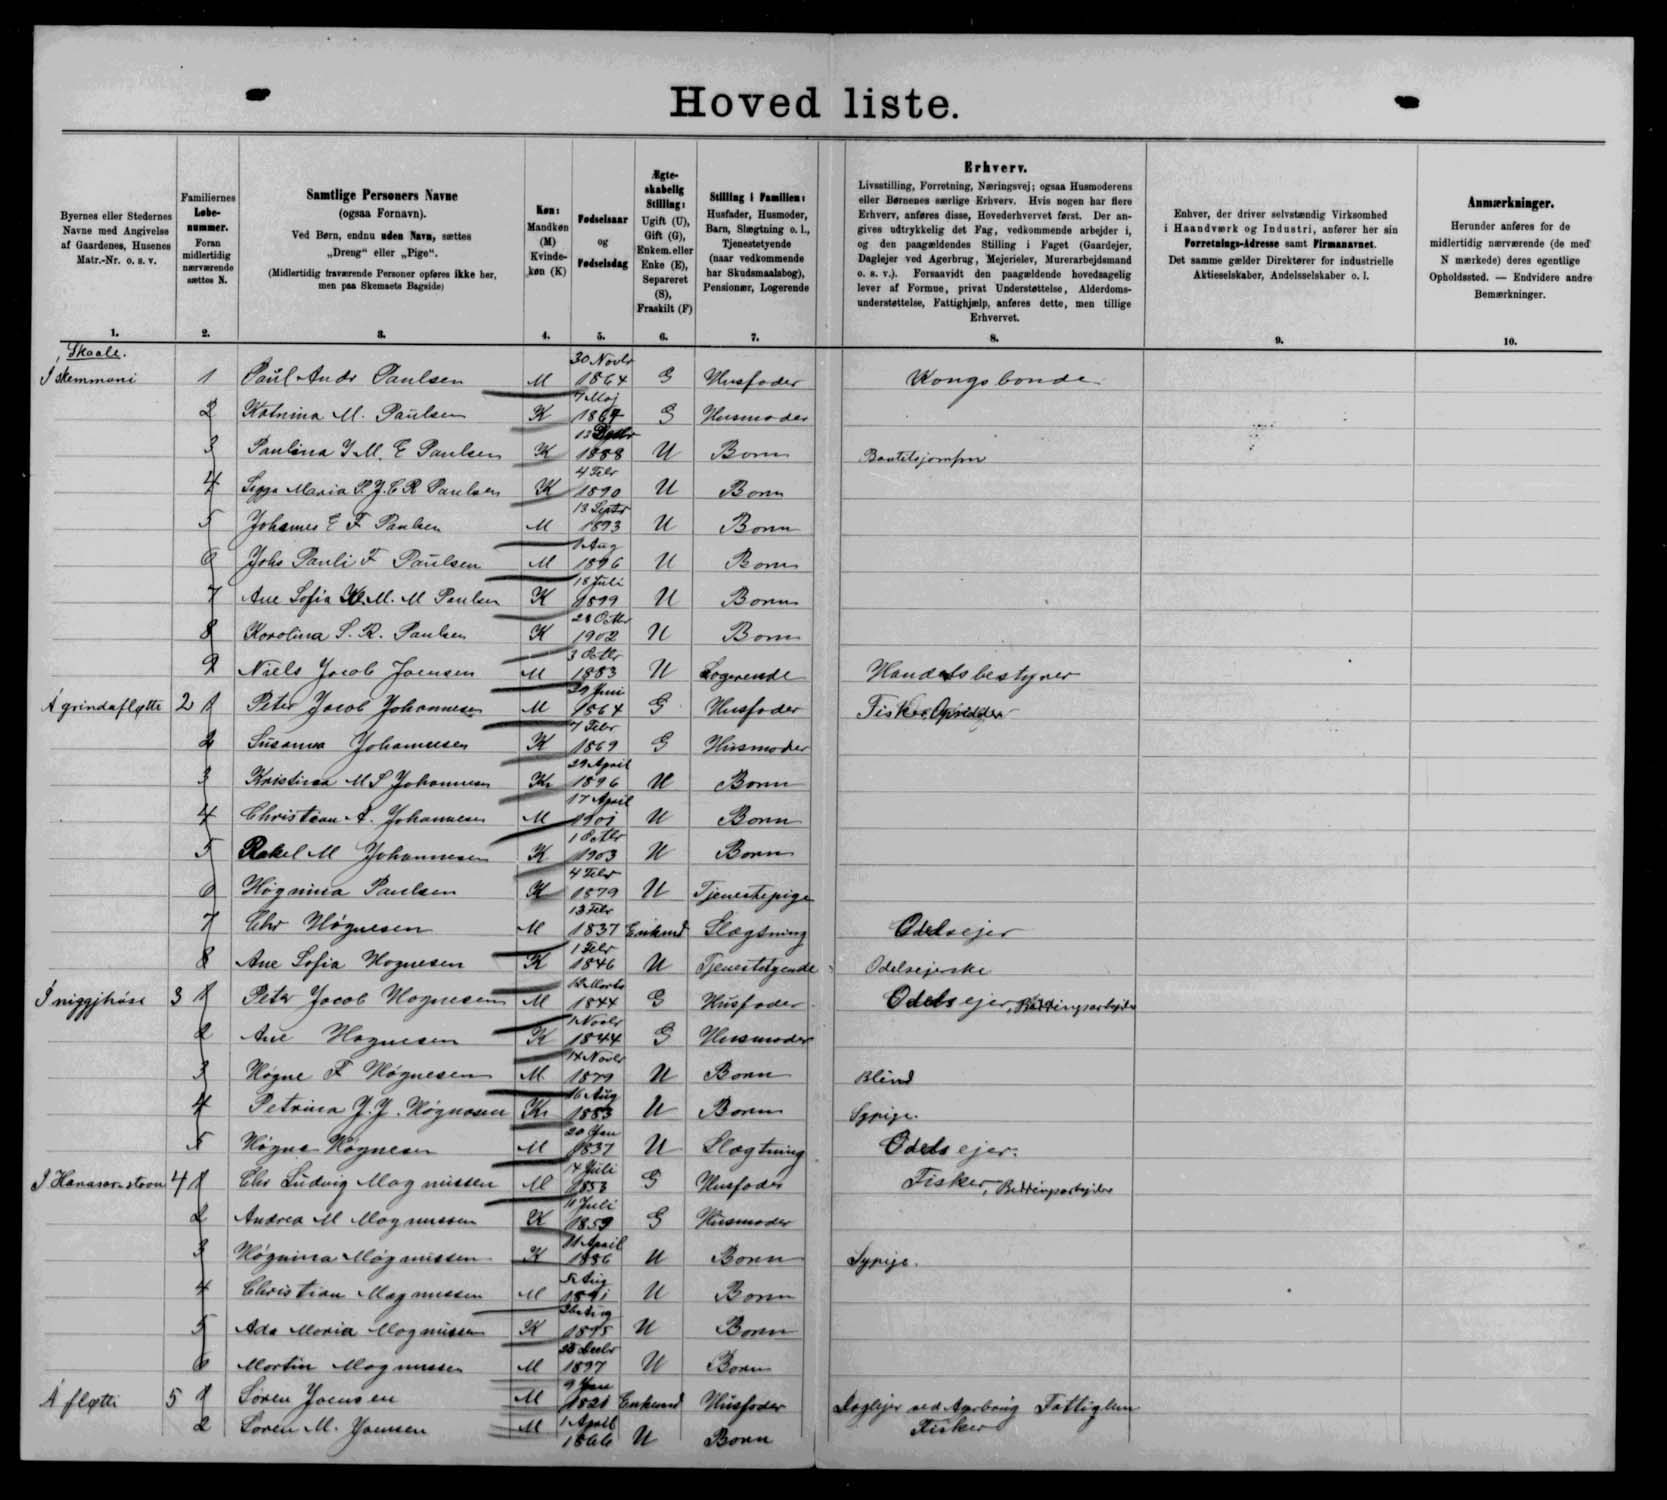 Hoved liste.
Byernes eller Stedernes Navne med Angivelse af Gaardenes, Husenes Matr.-Nr. o. s. v.
Familiernes Løbenummer. Foran midlertidig nærværende sættes N.
Samtlige Personers Navne (ogsaa Fornavn).
Ved Børn, endnu uden Navn, sættes „Dreng“ eller „Pige“.
(Midlertidig fraværende Personer opføres ikke her, men paa Skemaets Bagside)
Køn: Mandkøn (M) Kvindekøn (K)
Fødselsaar og Fødselsdag
Ægteskabelig Stilling: Ugift (U), Gift (G), Enkem. eller Enke (E), Separeret (S), Fraskilt (F)
Stilling i Familien: Husfader, Husmoder, Barn, Slægtning o. l., Tjenestetyende (naar vedkommende har Skudsmaalsbog), Pensionær, Logerende
Erhverv.
Livsstilling, Forretning, Næringsvej; ogsaa Husmoderens eller Børnenes særlige Erhverv. Hvis nogen har flere Erhverv, anføres disse, Hovederhvervet først. Der angives udtrykkelig det Fag, vedkommende arbejder i, og den paagældendes Stilling i Faget (Gaardejer, Daglejer ved Agerbrug, Mejerielev, Murerarbejdsmand o. s. v.). Forsaavidt den paagældende hovedsagelig lever af Formue, privat Understøttelse, Alderdomsunderstøttelse, Fattighjælp, anføres dette, men tillige Erhvervet.
Enhver, der driver selvstændig Virksomhed i Haandværk og Industri, anfører her sin Forretnings-Adresse samt Firmanavnet. Det samme gælder Direktører for industrielle Aktieselskaber, Andelsselskaber o. l.
Anmærkninger.
Herunder anføres for de midlertidig nærværende (de med N mærkede) deres egentlige Opholdssted. — Endvidere andre Bemærkninger.
1. 2. 3. 4. 5. 6. 7. 8. 9. 10.
Skaale.
Í skemmoni 1 Paul Andr Paulsen M 30 Novbr 1864 G Husfader Kongsbonde
2 Katrina M. Paulsen K 7 Maj 1864 G Husmoder
3 Paulina J M. E Paulsen K 1888 U Born
4 Sigga Maria P. J. C R Paulsen K 4 Febr 1890 U Born
5 Johannes E F Paulsen M 13 Septbr 1893 U Born
6 Johs Pauli F Paulsen M 1 Aug 1896 U Born
7 Ane Sofia M. M Paulsen K 18 Juli 1899 U Born
8 Karolina S. R. Paulsen K 28 Octbr 1902 U Born
9 Niels Jacob Joensen M 3 Octbr 1883 U Logerende Handelsbestyrer
Á grindafløtti 2 1 Peter Jacob Johannesen M 29 Juni 1864 G Husfader Fisker, Opsidder
2 Susanna Johannesen K 7 Febr 1869 G Husmoder
3 Kristina M S Johannesen K 29 April 1896 U Born
4 Christian A. Johannesen M 17 April 1901 U Born
5 Rakel M Johannesen K 1 Octbr 1903 U Born
6 Høgnina Paulsen K 4 Febr 1879 U Tjenestepige
7 Chr Høgnesen M 13 Febr 1837 Enkemd Slægtning Odelsejer
8 Ane Sofia Høgnesen K 1 Febr 1846 U Tjenestetyende Odelsejerske
Í niggjhúsi 3 1 Peter Jacob Høgnesen M 12 Marts 1844 G Husfader Odelsejer, Beddingsarbejder
2 Ane Høgnesen K 1 Novbr 1844 G Husmoder
3 Høgne F Høgnesen M 14 Novbr 1879 U Born Blind
4 Petrina J. J. Høgnesen K 16 Aug 1883 U Born Sypige.
5 Høgne Høgnesen M 20 Jan 1837 U Slægtning Odelsejer.
Í Hanasarstovu 4 1 Chr Ludvig Magnussen M 4 Juli 1853 G Husfader Fisker, Beddingsarbejder
2 Andrea M Magnussen K 11 Juli 1859 G Husmoder
3 Høgnina Magnussen K 11 April 1886 U Born Sypige.
4 Christian Magnussen M 5 Aug 1891 U Born
5 Ada Maria Magnussen K 26 Aug 1895 U Born
6 Martin Magnussen M 1897 U Born
Á fløtti 5 1 Søren Joensen M 9 Jan 1821 Enkemd Husfader Daglejer ved Agerbrug Fattiglem
2 Søren M. Joensen M 1 April 1866 U Born Fisker